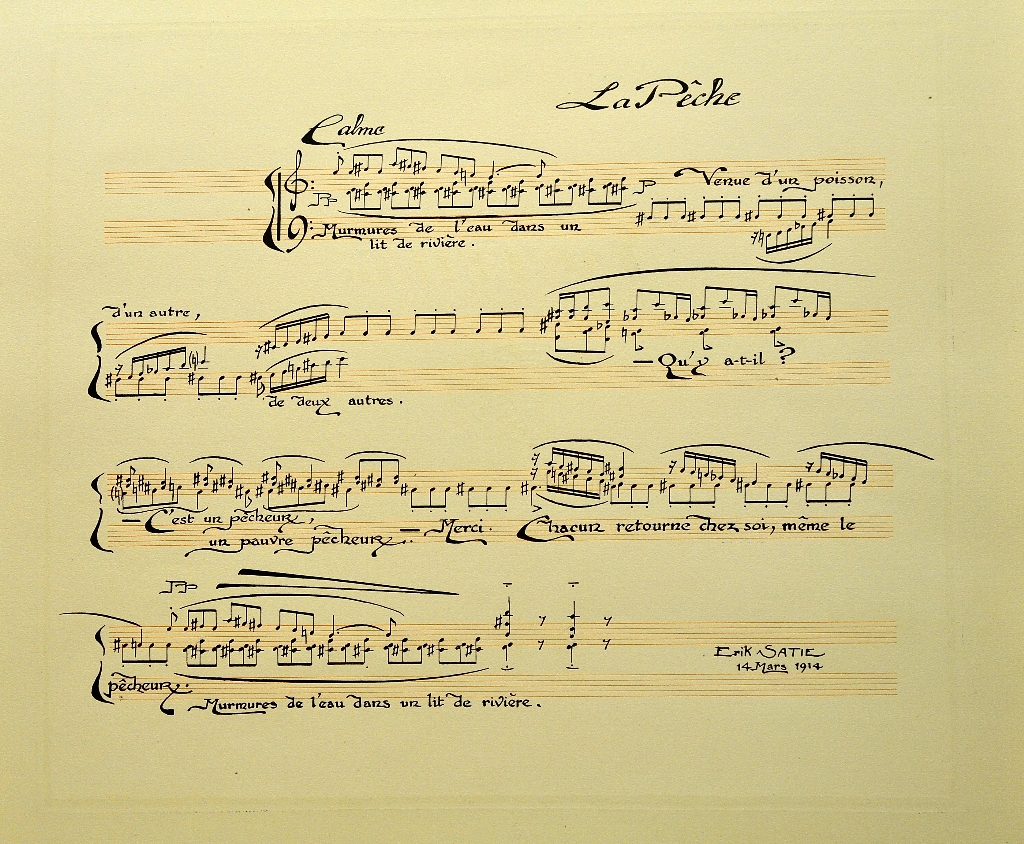 La Pêche
Calme
PP
P
Venue d'un poisson,
Murmures de l'eau dans un
lit de rivière.
d'un autre,
— Qu'y a-t-il ?
de deux autres.
— C'est un pêcheur,
un pauvre pêcheur..
— Merci.
Chacun retourne chez soi, même le
PP
pêcheur.
Murmures de l'eau dans un lit de rivière.
Erik SATIE
14 Mars 1914